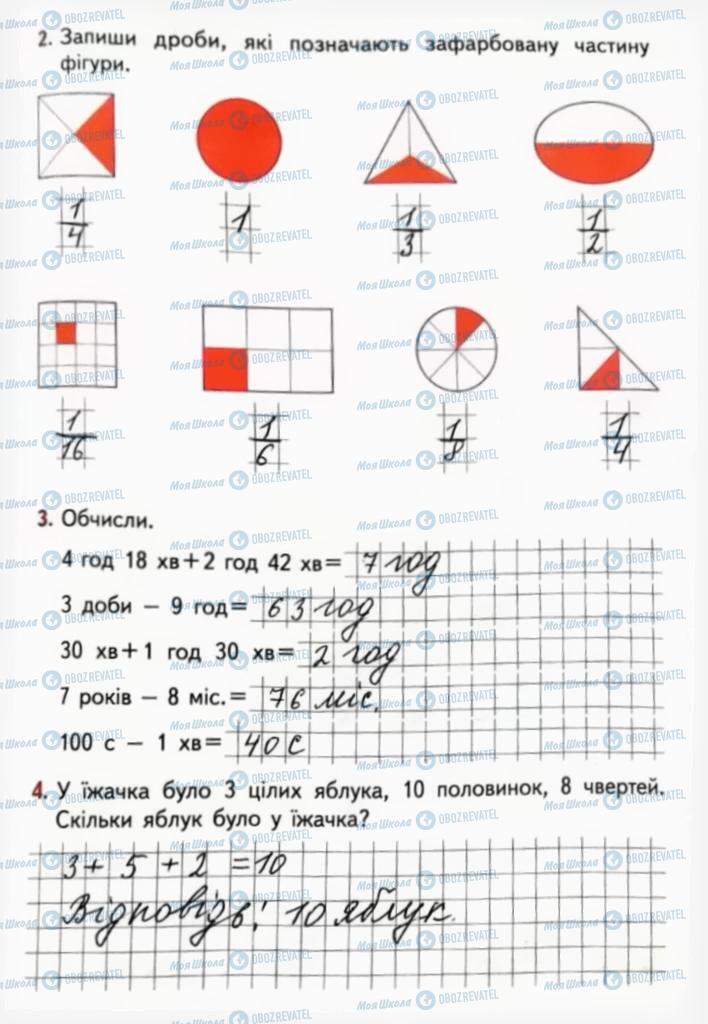 2. Запиши дроби, які позначають зафарбовану частину
фігури.
1/4 1 1/3 1/2
1/16 1/6 1/8 1/4
3. Обчисли.
4 год 18 хв + 2 год 42 хв = 7 год
3 доби − 9 год = 63 год
30 хв + 1 год 30 хв = 2 год
7 років − 8 міс. = 76 міс.
100 с − 1 хв = 40 с
4. У їжачка було 3 цілих яблука, 10 половинок, 8 чвертей.
Скільки яблук було у їжачка?
3 + 5 + 2 = 10
Відповідь: 10 яблук.
Моя Школа OBOZREVATEL